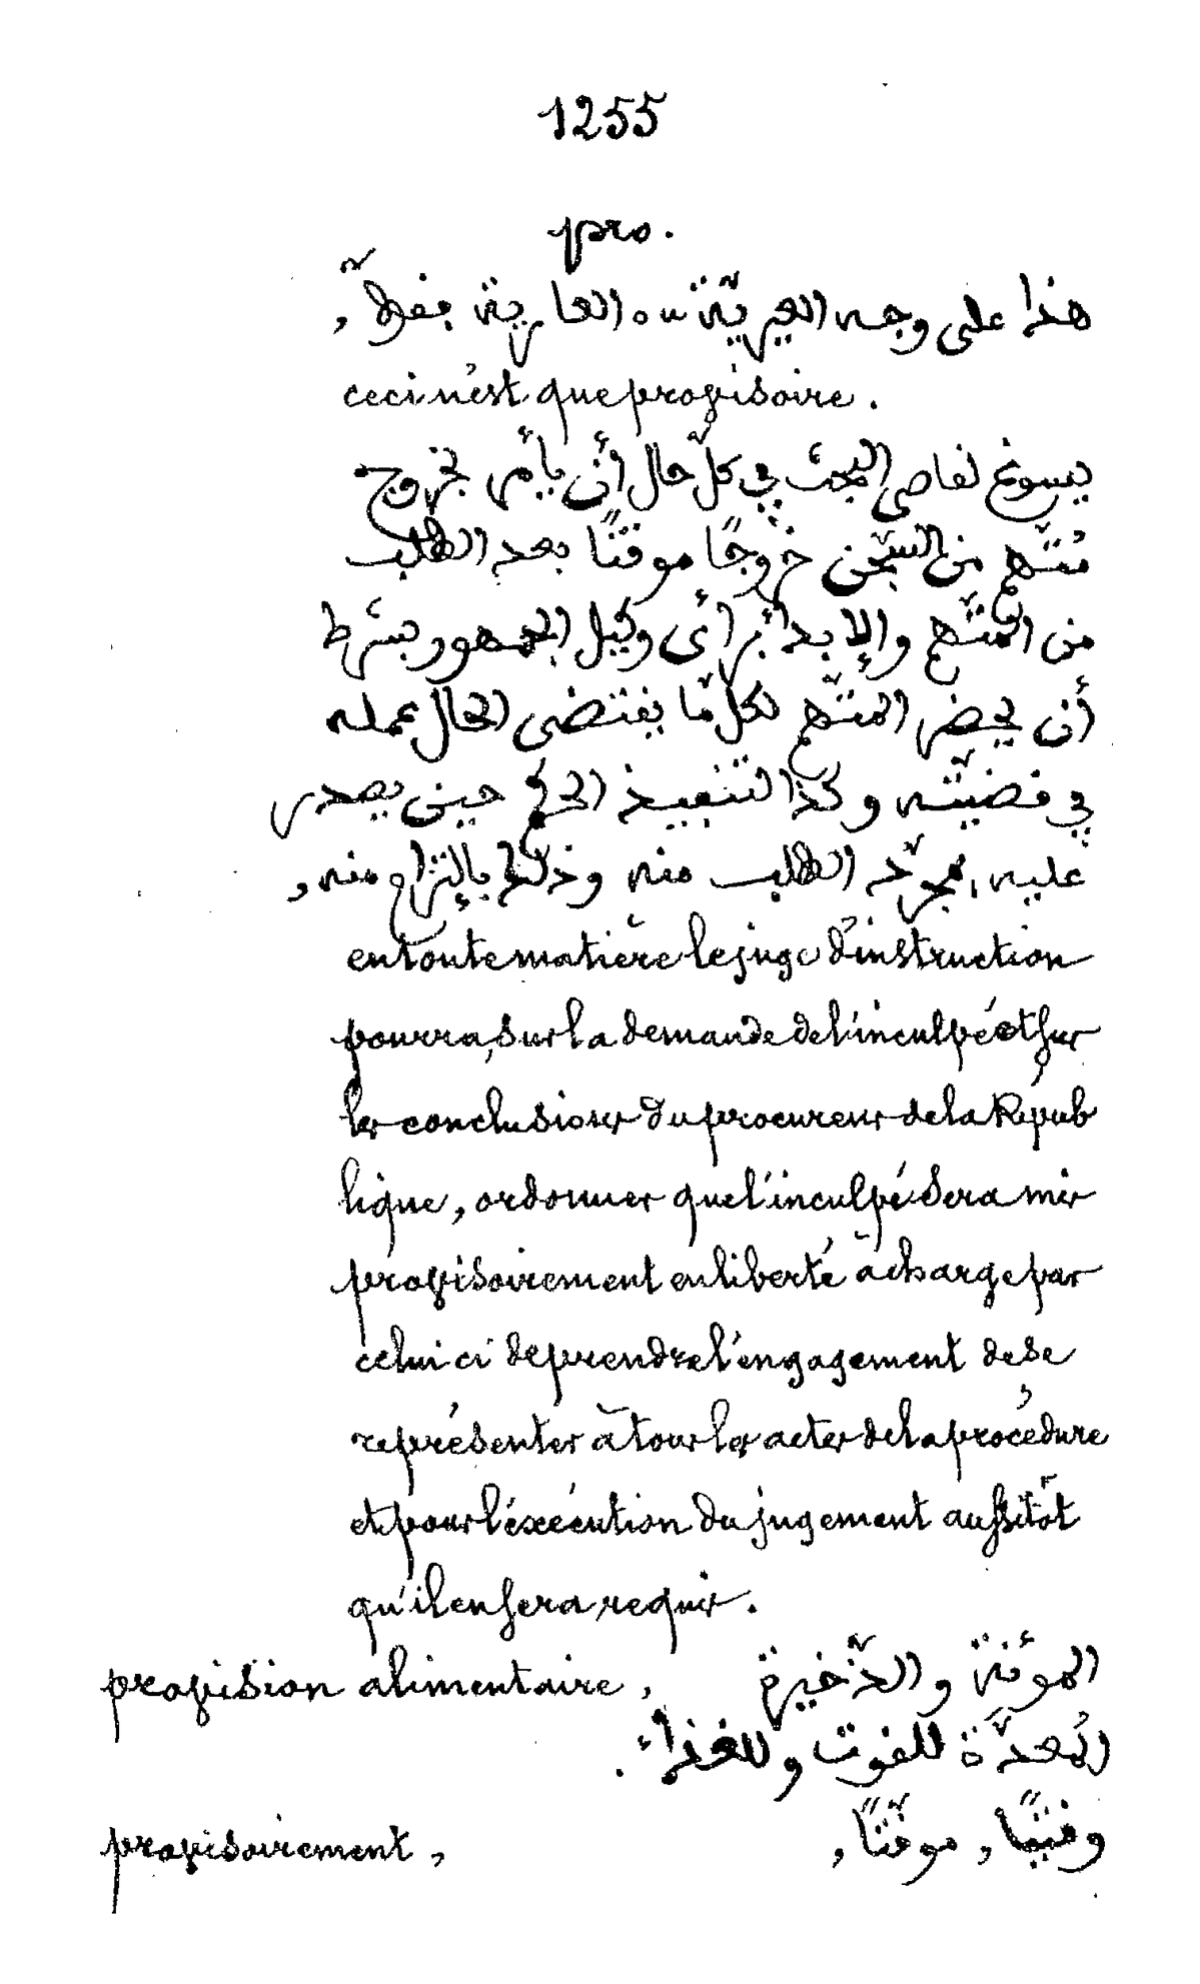 1255
pro.
هذا على وجه العيريّة ... العارية فقط,
ceci n'est que provisoire.
يسوغ لقاضي البحث في كلّ حال أن يأمر بخروج
مُتّهم من السّجن خروجًا موقتًا بعد الطلب
من المتّهم والإبداء برأي وكيل الجمهور بشرط
أن يحضر المتّهم لكلّ ما يقتضى الحال بعمله
في قضيّته وكذا لتنفيذ الحكم حين يصدر
عليه بمجرّد الطلب منه وذلك بإلتزام منه,
en toute matière le juge d'instruction
pourra, sur la demande de l'inculpé et sur
les conclusions du procureur de la Répub
lique, ordonner que l'inculpé sera mis
provisoirement en liberté à charge par
celui ci de prendre l'engagement de se
représenter à tous les actes de la procédure
et pour l'éxécution du jugement aussitôt
qu'il en sera, requis.
provision alimentaire, المؤنة والذّخيرة
المُعدّة للقوت وللغذاء.
provisoirement, وقتيّا, موقّتًا,